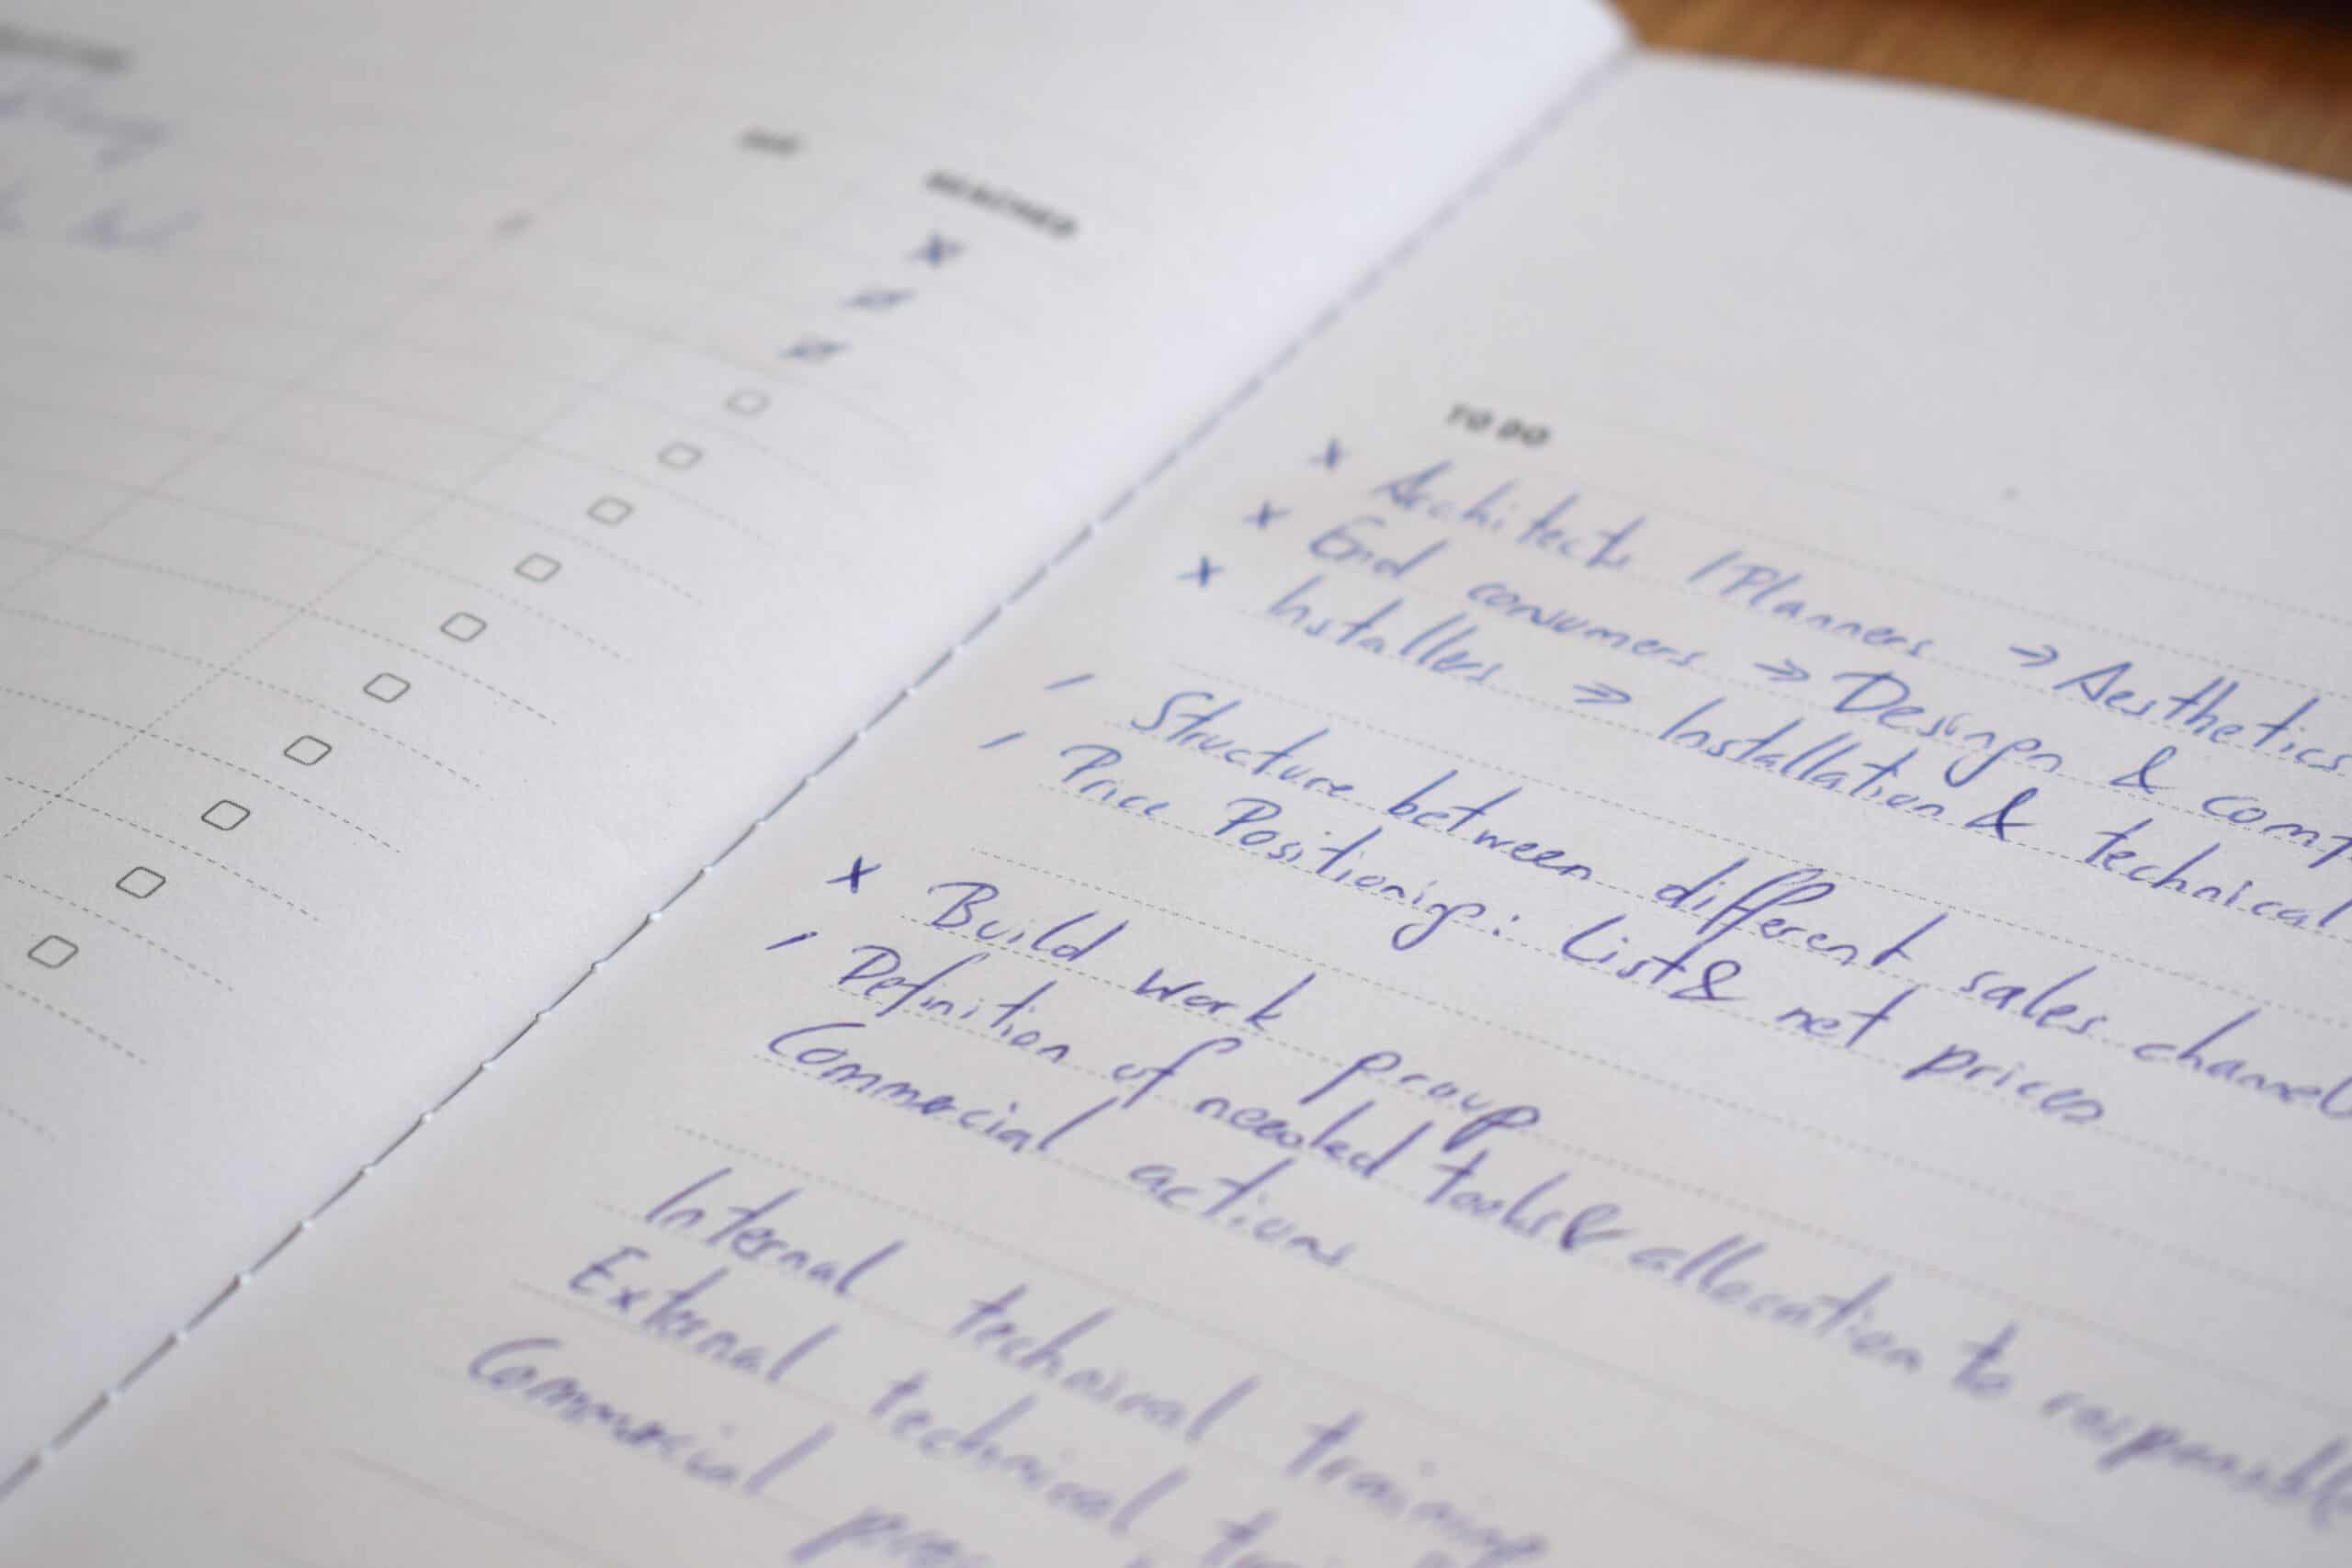 REACHED
TO DO
x Architects / Planners → Aesthetics
x End consumers → Design & comf
x Installers → Installation & technical
/ Structure between different sales channel
/ Price Positioning: List & net prices
x Build work group
/ Definition of needed tools & allocation to responsible
Commercial actions
Internal technical training
External technical
Commercial